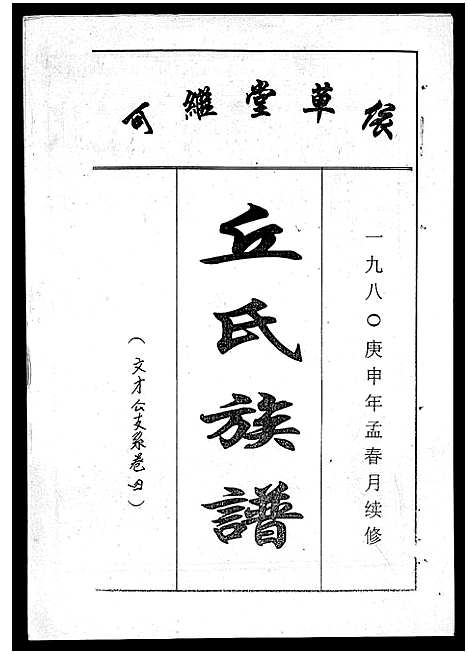 可繼堂草
一九八〇庚申年孟春月续修
丘氏族譜
(文才公支系卷四)